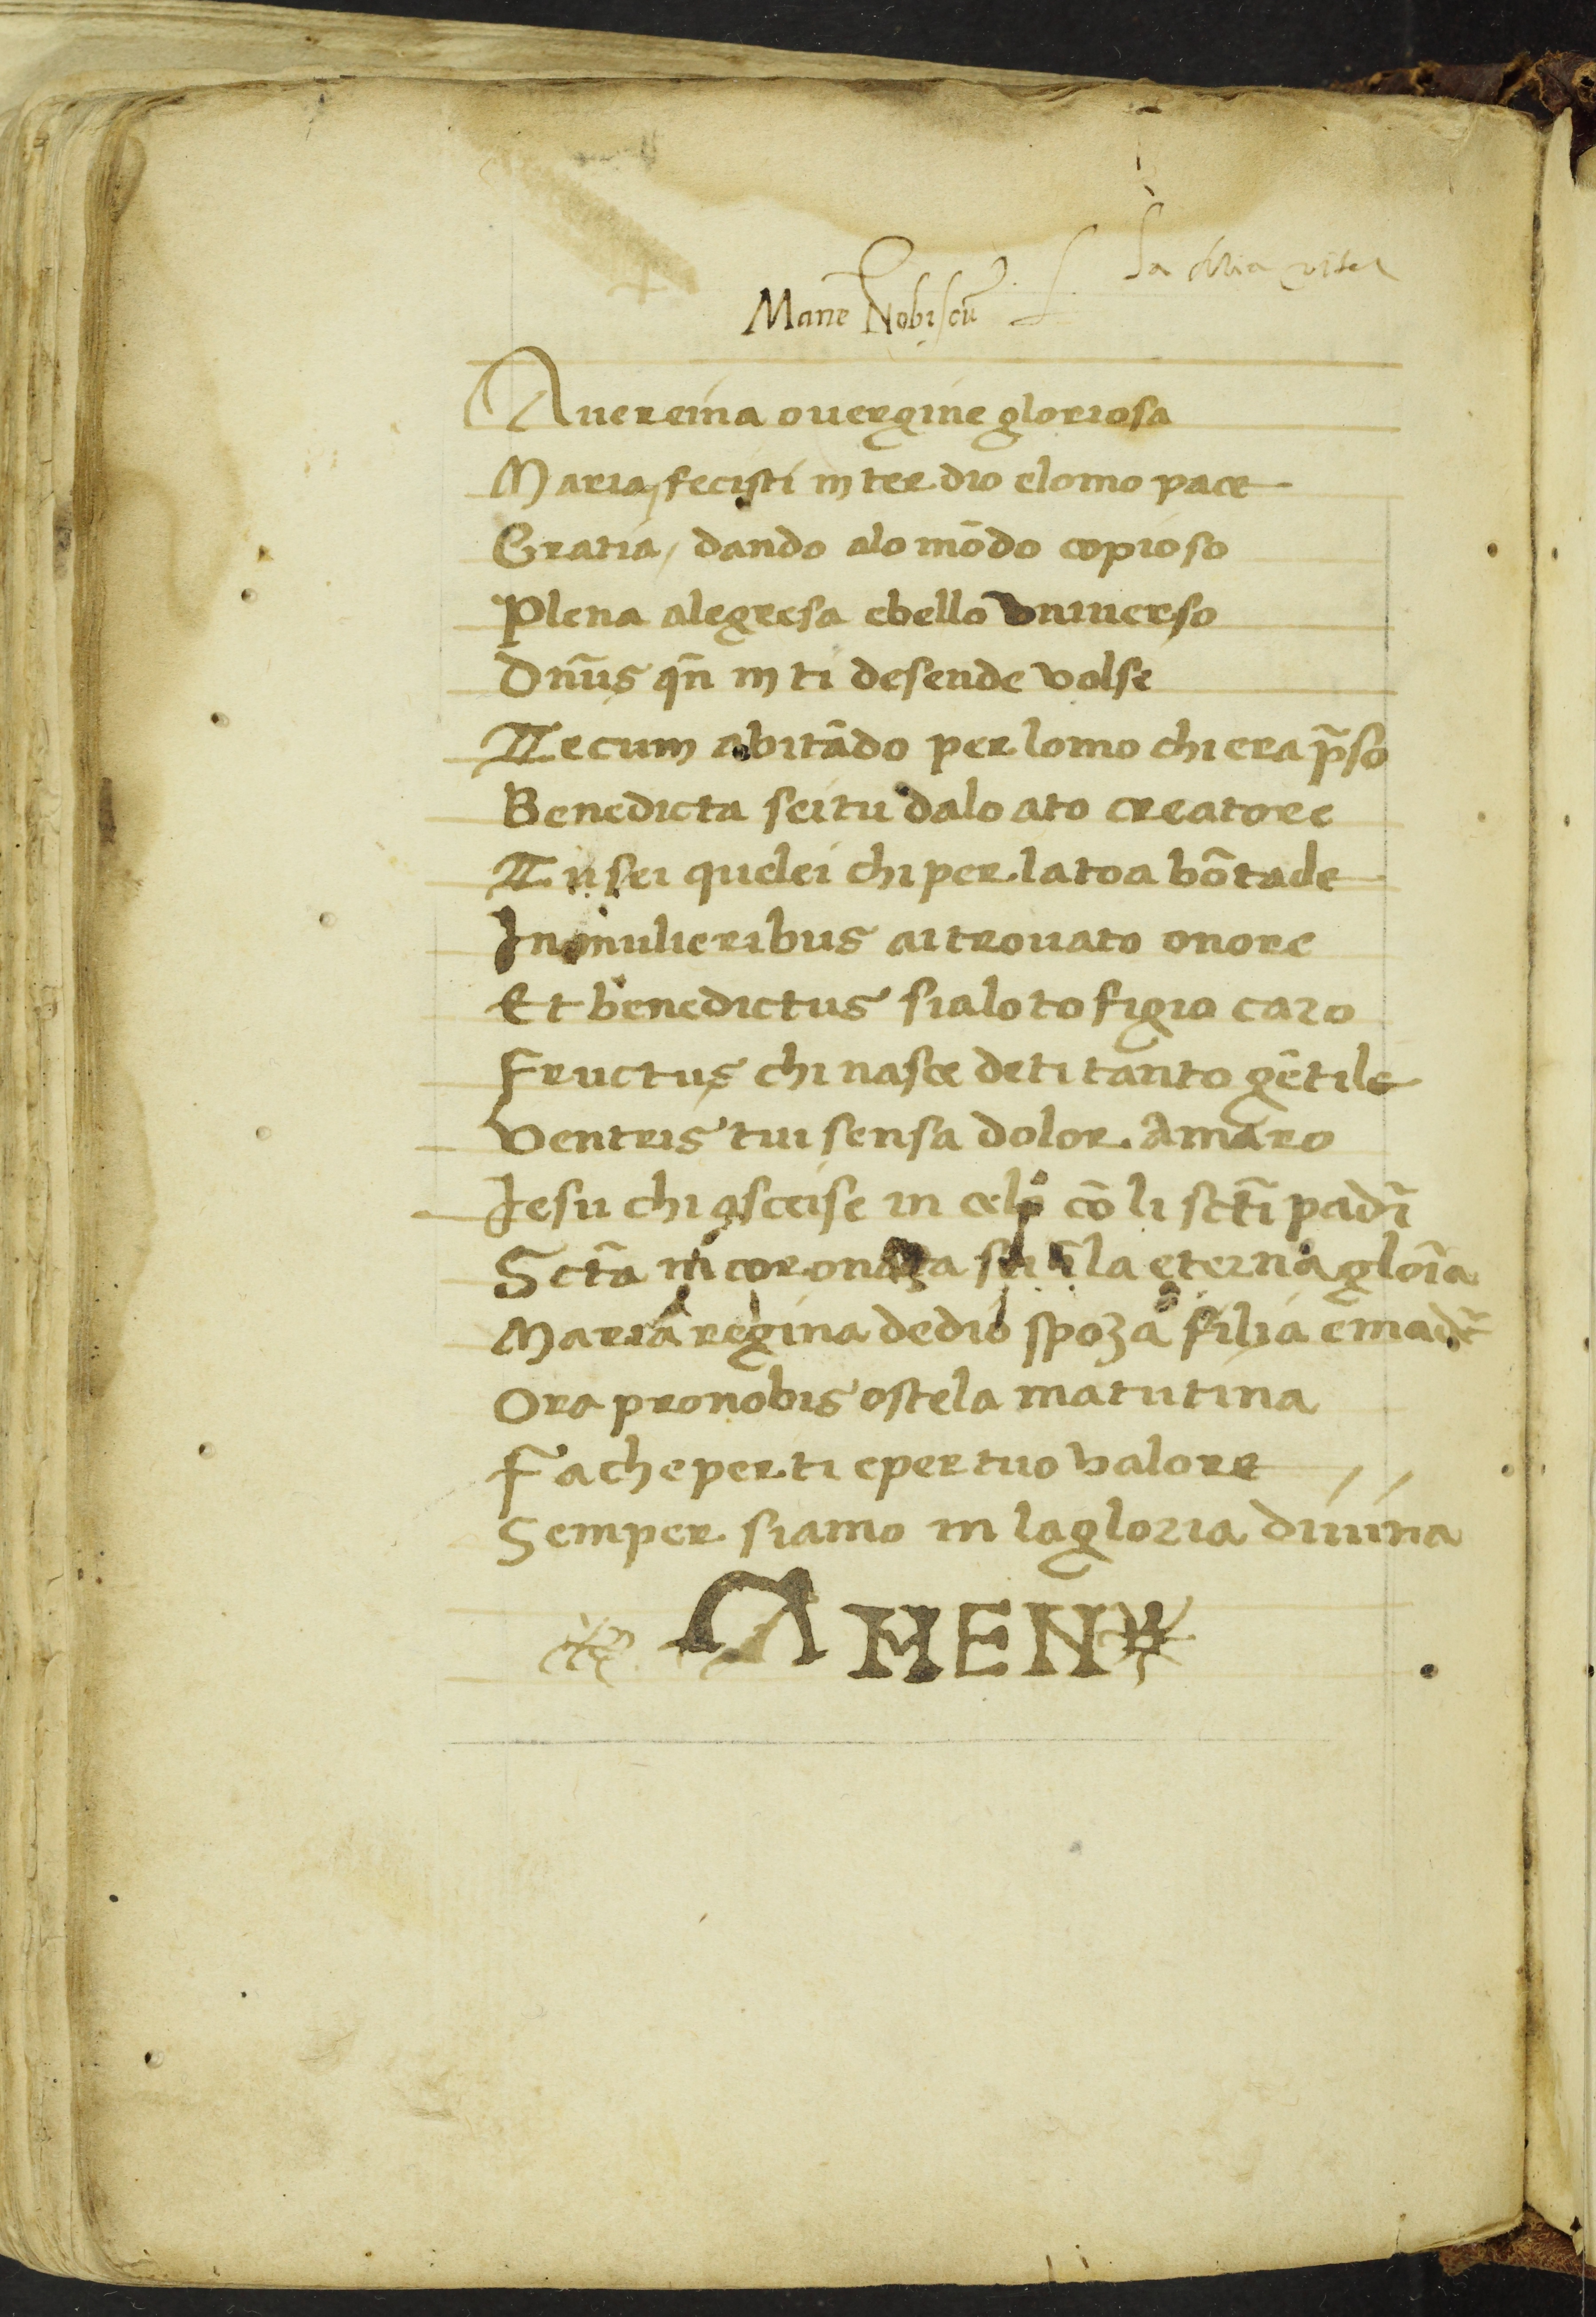 la mia vita
Mane Nobiscũ
Aue reina o uergine gloriosa
Maria, fecisti in ter dio elomo pace
Gratia, dando alo mõdo copioso
Plena alegresa ebello vniuerso
Dñus qñ in ti desende volse
Tecum abitãdo per lomo chi era p̃so
Benedicta sei tu dalo ato creatore
Tu sei quelei chi per la toa bõtade
In mulieribus ai trouato onore
Et benedictus sia lo to figio caro
Fructus chi nasce de ti tanto gẽtile
Ventris tui sensa dolor Amaro
Iesu chi asceise in celo cõ li sct̃i padr̃i
Sct̃a incoronata sei ĩ la eterna glor̃ia
Maria regina de dio spoza filia e madr̃e
Ora pro nobis o stela matutina
Fa che per ti e per tuo valore
Semper siamo in la gloria diuina
AMEN